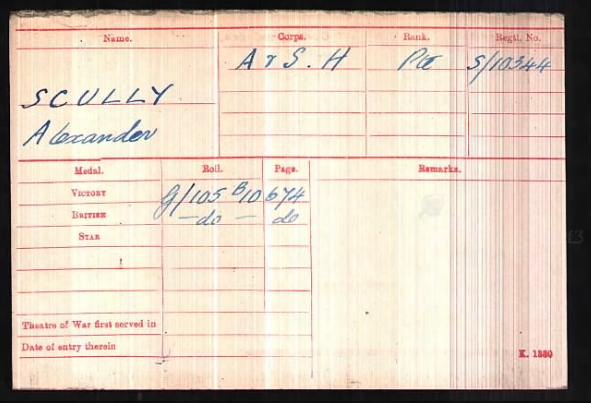 Name. Corps. Rank. Regtl. No.
A & S. H Pte S/10344
SCULLY
Alexander
Medal. Roll. Page. Remarks.
VICTORY G/105 B10 674
BRITISH —do— do
STAR
Theatre of War first served in
Date of entry therein
K. 1380